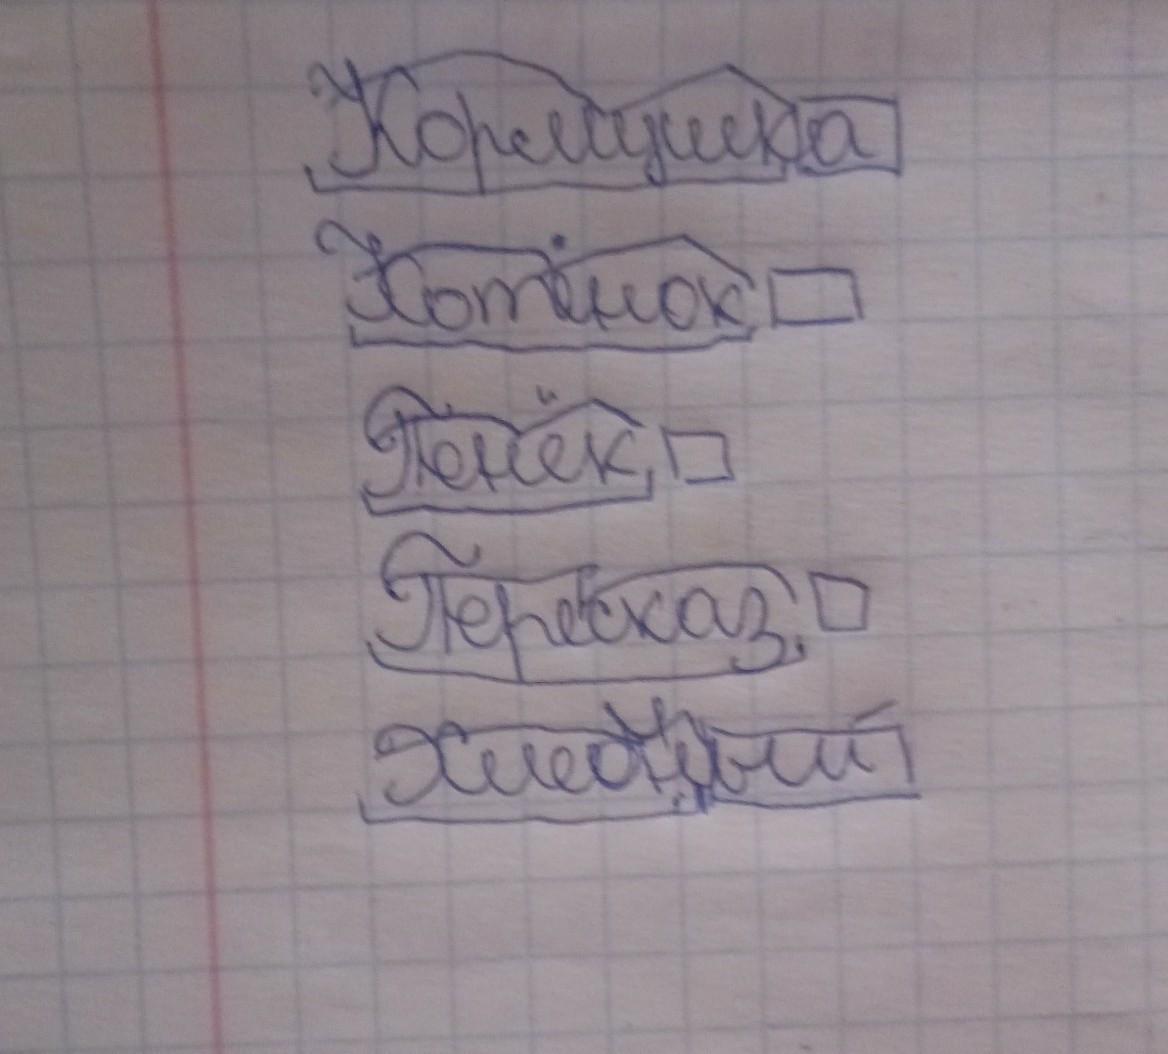 Кормушка
Котёнок
Пенёк
Пересказ
Хлебный